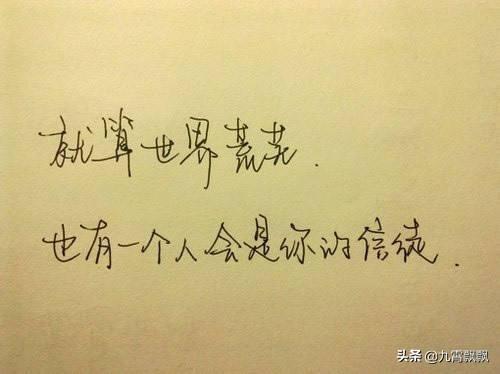 就算世界荒芜.
也有一个人会是你的信徒.
头条 @九霄飘飘